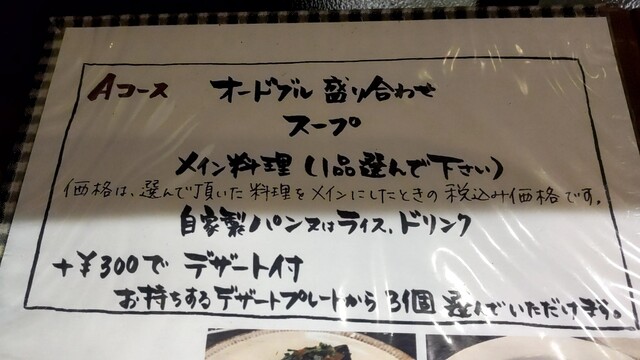 Aコース オードブル 盛り合わせ
スープ
メイン料理(1品選んで下さい)
価格は、選んで頂いた料理をメインにしたときの税込み価格です。
自家製パン又はライス,ドリンク
+¥300で デザート付
お持ちするデザートプレートから3個 選んでいただけます。